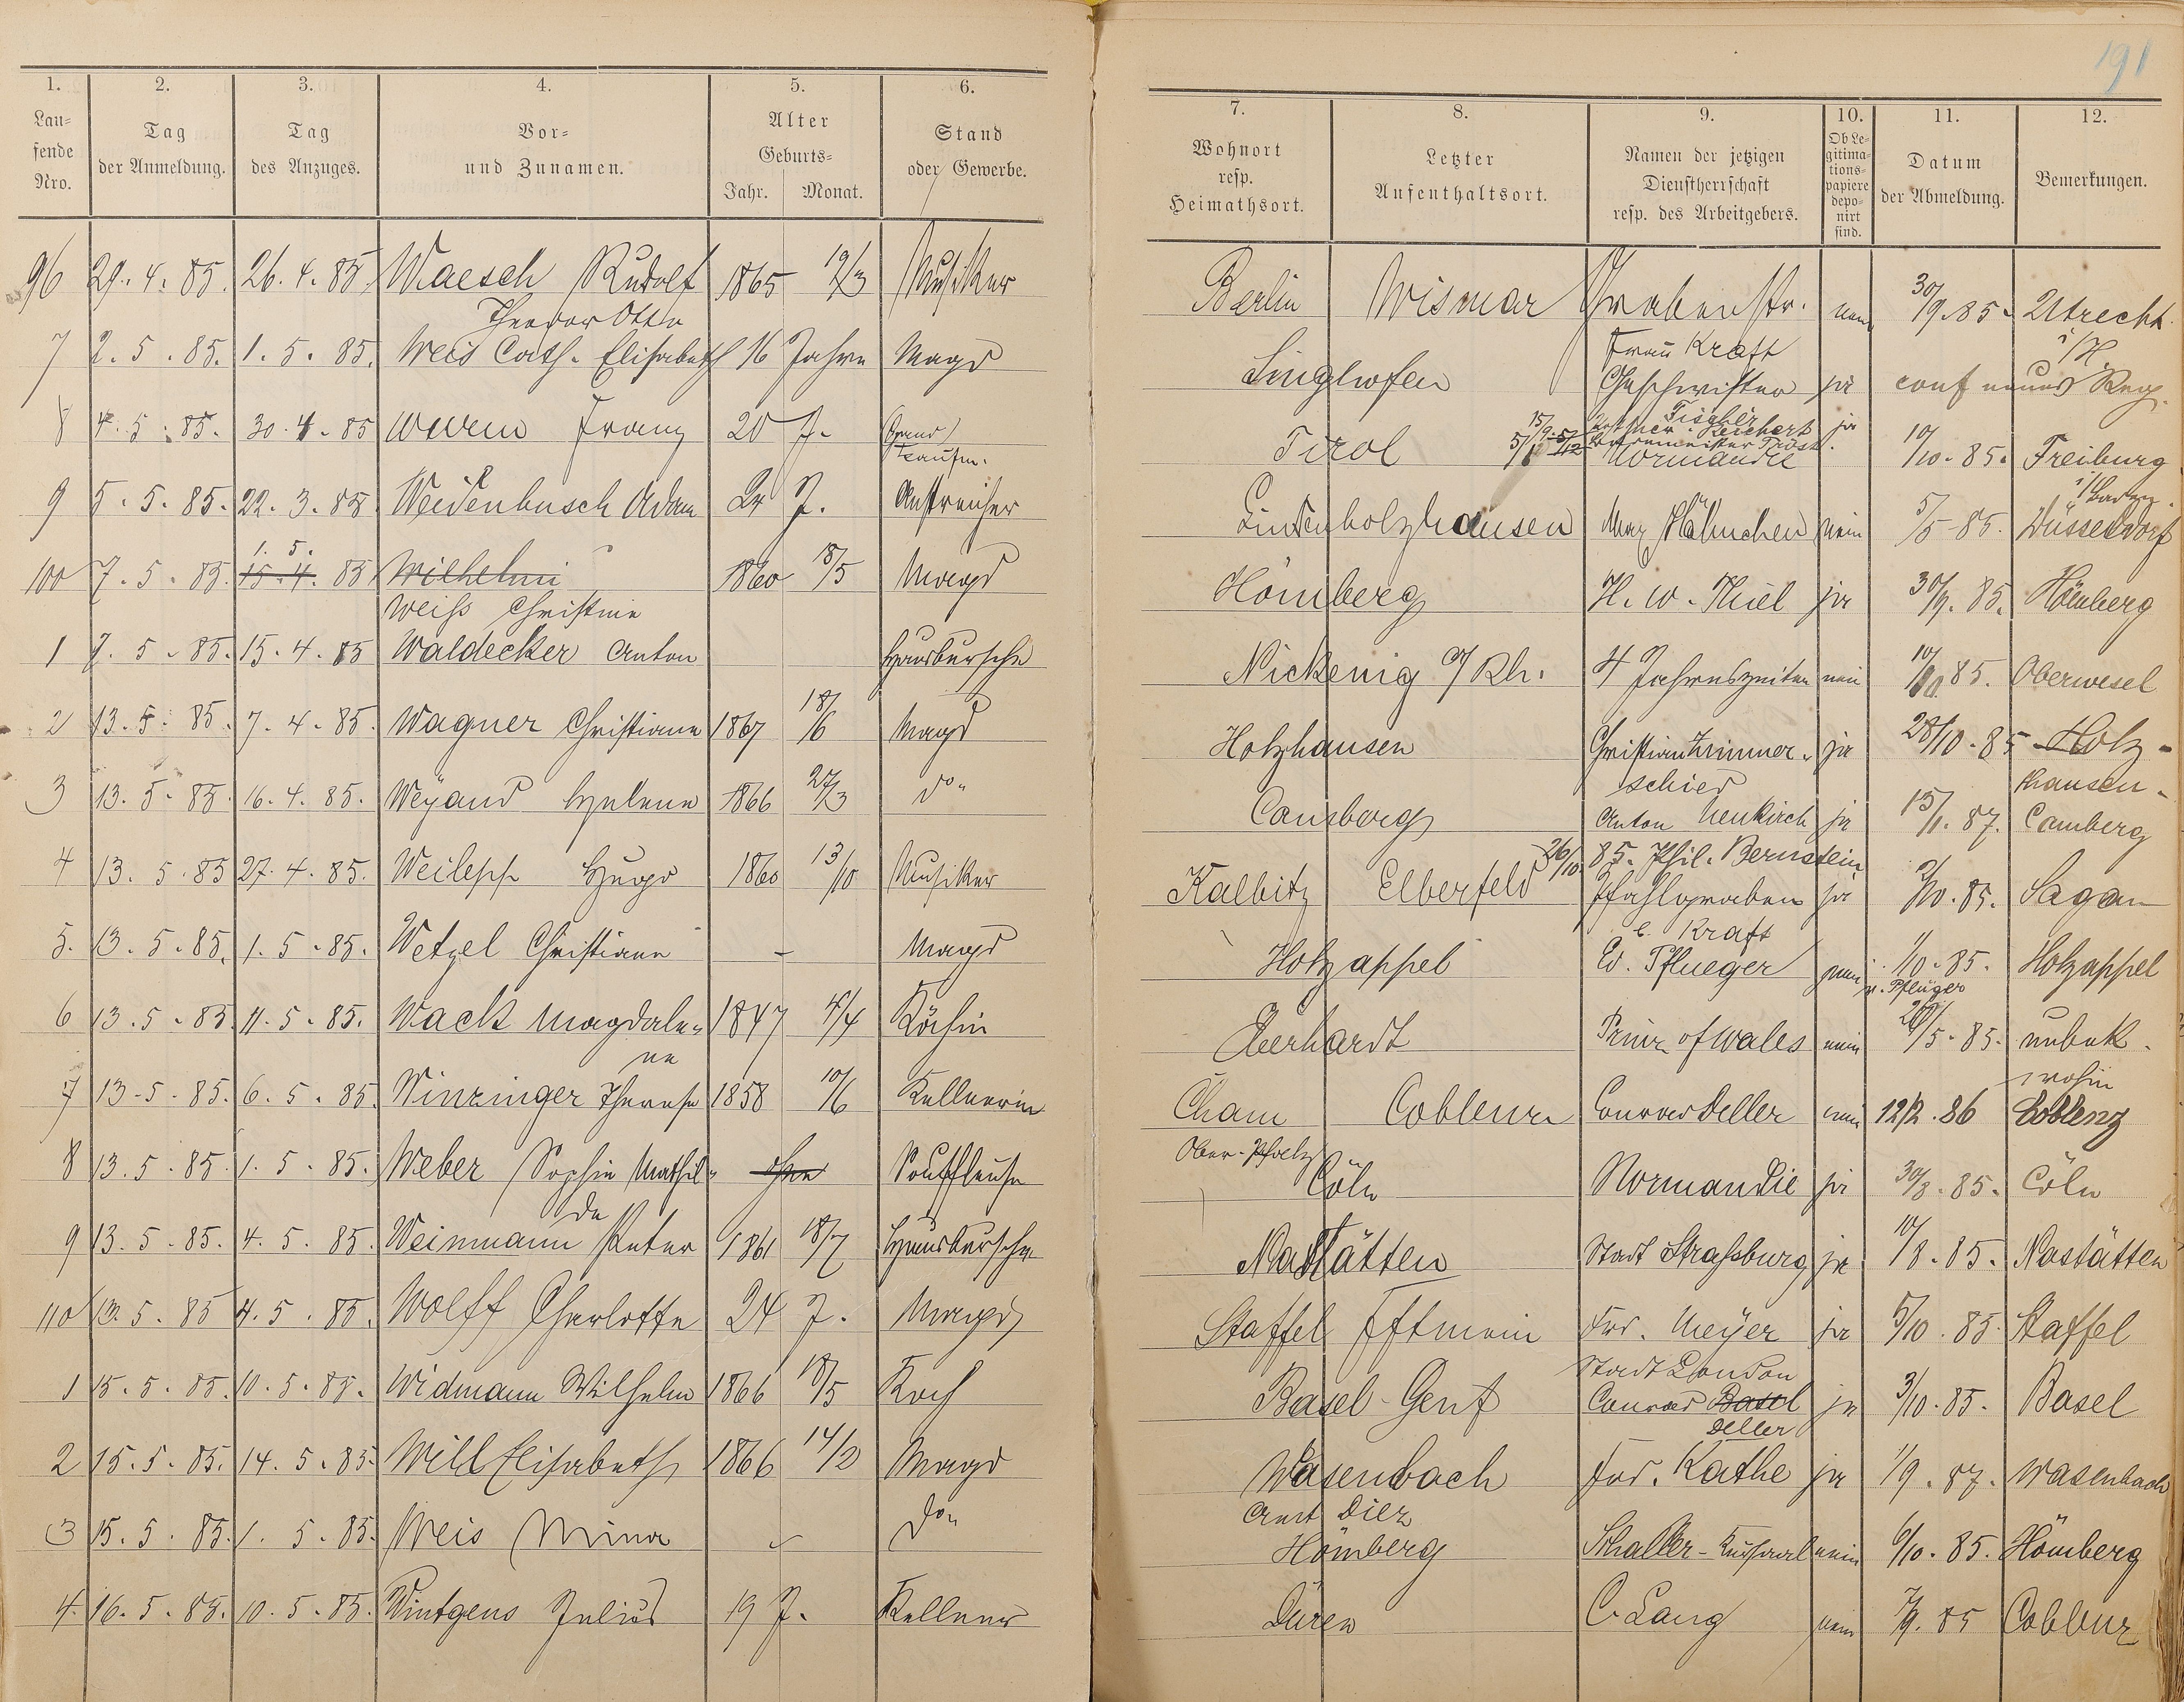 191
1. 2. 3. 4. 5. 6.
Lau-
fende
Nro.
Tag
der Anmeldung.
Tag
des Anzuges.
Vor-
und Zunamen.
Alter
Geburts-
Jahr. Monat.
Stand
oder Gewerbe.
7. 8. 9. 10. 11. 12.
Wohnort
resp.
Heimathsort.
Letzter
Aufenthaltsort.
Namen der jetzigen
Dienstherrschaft
resp. des Arbeitgebers.
Ob Le-
gitima-
tions-
papiere
depo-
nirt
sind.
Datum
der Abmeldung.
Bemerkungen.
96 29. 4. 85. 26. 4. 85 Waesch Rudolf 1865 19/3 Musiker Berlin Wismar Grabenstr. nein 30/9. 85. Utrecht
Theodor Otto Frau Kraft i/H.
7 2. 5. 85. 1. 5. 85. Weis Cath. Elisabeth 16 Jahre Magd Singhofen Geschwister ja conf neues Reg.
Fischer
8 4. 5. 85. 30. 4. 85 20 J. Tirol Normandie ja 10/10. 85. Freiburg
Kaufm. i/Baden.
9 5. 5. 85. 22. 3. 85 Weidenbusch Adam 24 J. Anstreicher Lindenholzhausen Max Hähnchen nein 5/5 85. Düsseldorf
1. 5.
100 7. 5. 85. 15. 4. 85 Wilhelmi 1860 18/5 Magd Hömberg H. W. Thiel ja 30/9. 85. Hömberg
Weiss Christine
1 7. 5. 85. 15. 4. 85 Waldecker Anton Hausbursche Nickenig a/Rh. 4 Jahreszeiten nein 10/10. 85. Oberwesel
2 13. 5. 85. 7. 4. 85. Wagner Christiane 1867 18/6 Magd Holzhausen Christian Zimmer- ja 28/10. 85 Holz-
schied hausen.
3 13. 5. 85. 16. 4. 85. Weyand Helene 1866 27/3 do. Camberg Anton Neukirch ja 15/1. 87. Camberg
26/10 85. Phil. Bernstein
4 13. 5. 85 27. 4. 85. Weilepp Hugo 1860 13/10 Musiker Kalbitz Elberfeld Pfahlgraben ja 2/10. 85. Sagan
b. Kraft
5. 13. 5. 85. 1. 5. 85. Wetzel Christiane - Magd Holzappel Ed. Pflueger nein 1/10. 85. Holzappel
n. Pflüger
6 13. 5. 85 11. 5. 85. Wack Magdale- 1847 4/4 Köchin Eberhardt Prinz of Wales nein 20/5. 85. unbek.
ne wohin
7 13. 5. 85. 6. 5. 85. Winzinger Therese 1858 10/6 Kellnerin Cham Coblenz Conrad Deller nein 12/2. 86 Coblenz
Ober-Pfalz
8 13. 5. 85. 1. 5. 85. Weber Sophie Mathil- ohne Souffleuse Cöln Normandie ja 30/8. 85. Cöln
de
9 13. 5. 85. 4. 5. 85. Weinmann Peter 1861 18/7 Hausbursche Nastätten Stadt Strassburg ja 10/8. 85. Nastätten
110 13. 5. 85 4. 5. 85. Wolff Charlotte 24 J. Magd Staffel Fr. Meyer ja 5/10. 85 Staffel
Stadt London
1 15. 5. 85. 10. 5. 85. Widmann Wilhelm 1866 18/5 Koch Basel Genf Conrad Basel ja 3/10. 85. Basel
Deller
2 15. 5. 85. 14. 5. 85. Will Elisabeth 1866 14/2 Magd Wasenbach Frd. Käthe ja 1/9. 87. Wasenbach
Amt Diez
3 15. 5. 85. 1. 5. 85. Weis Mina - do. Hömberg Schaller-Kursaal nein 6/10. 85. Hömberg
4. 16. 5. 85. 10. 5. 85. Wintgens Julius 19 J. Kellner Düren C. Lang nein 7/9. 85 Coblenz